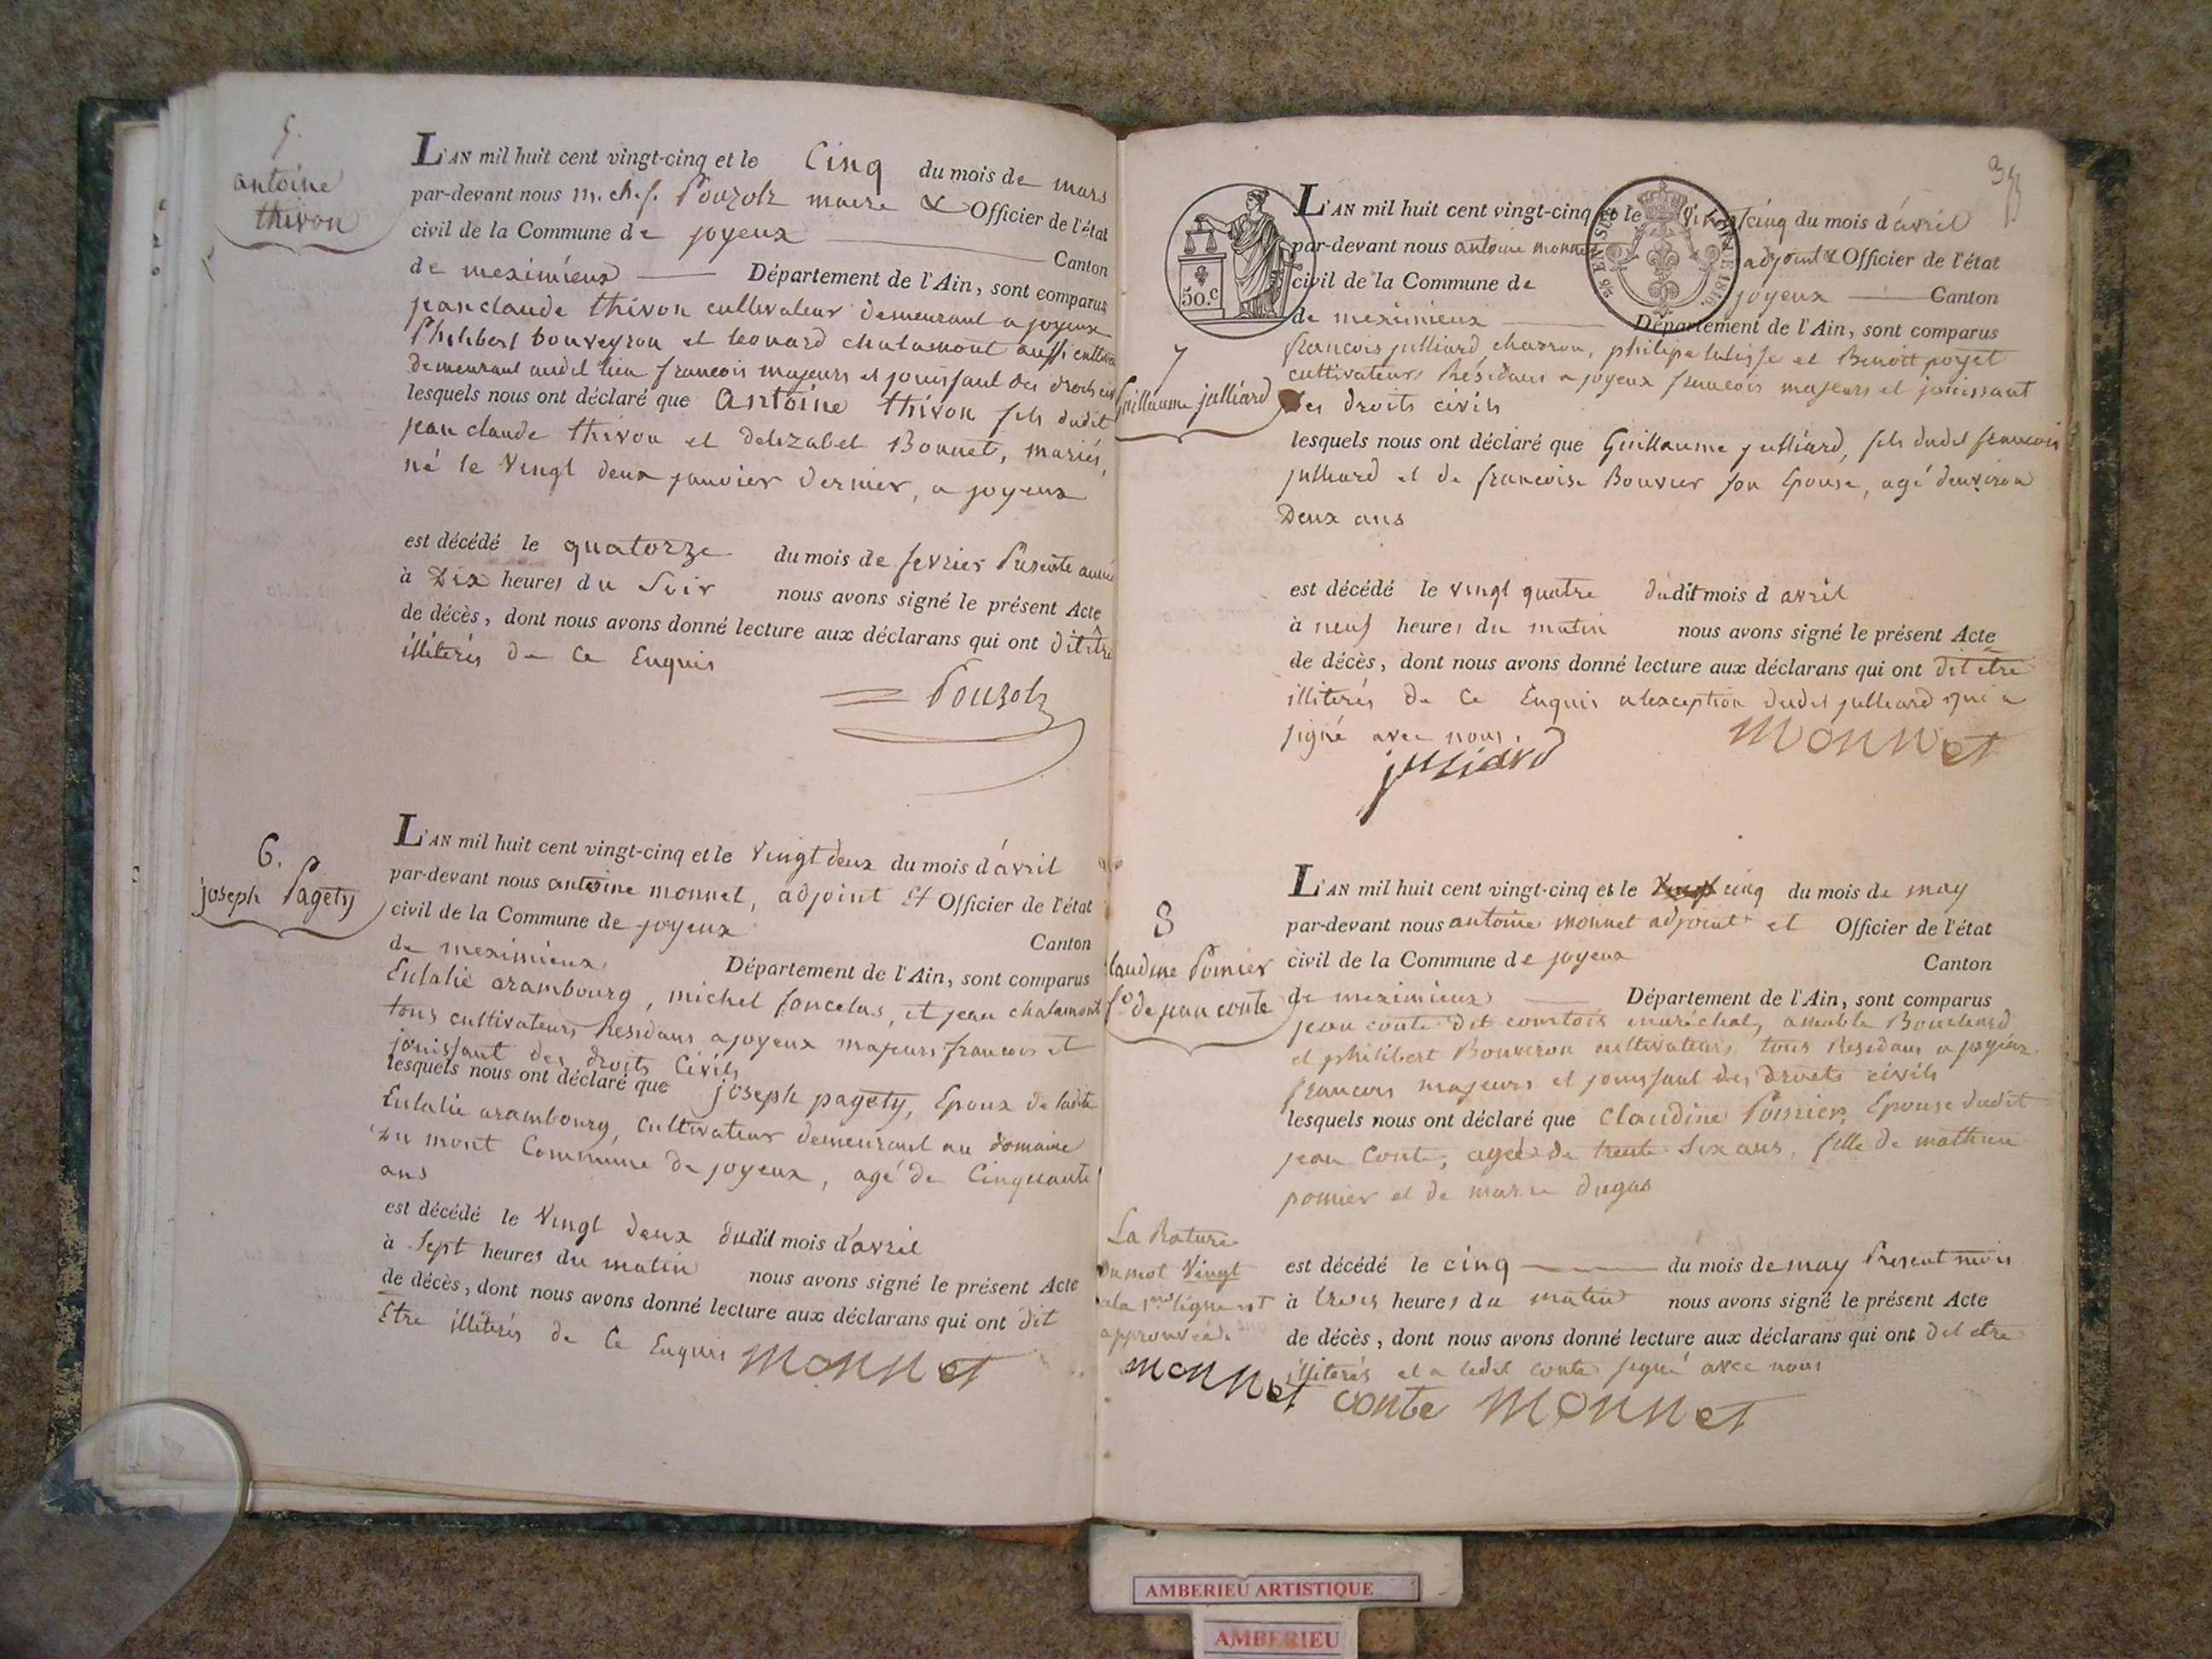 5.
antoine
thivon
L'AN mil huit cent vingt-cinq et le Cinq du mois de mars
par-devant nous m. ch. j. Pouzolz maire & Officier de l'état
civil de la Commune de joyeux Canton
de meximieux Département de l'Ain, sont comparus
jean claude thivon cultivateur demeurant a joyeux
Philibert bouveyron et leonard chalamont aussi
demeurant audit lieu francois majeurs et jouissant des droits
lesquels nous ont déclaré que Antoine thivon fils dudit
jean claude thivon et delizabet Bonnet, mariés,
né le Vingt deux janvier dernier, a joyeux
est décédé le quatorze du mois de fevrier Presente année
à Dix heures du Soir nous avons signé le présent Acte
de décès, dont nous avons donné lecture aux déclarans qui ont dit être
illiterés de Ce Enquis
Pouzolz
6.
joseph Pagety
L'AN mil huit cent vingt-cinq et le Vingt deux du mois d'avril
par-devant nous antoine monnet, adjoint Et Officier de l'état
civil de la Commune de joyeux
Canton
de meximieux Département de l'Ain, sont comparus
Eulalie arambourg, michel foncelas, et jean chalamont
tous cultivateurs Residans a joyeux majeurs francois et
jouissant des droits Civils
lesquels nous ont déclaré que joseph pagety, Epoux de ladite
Eulalie arambourg, Cultivateur demeurant au domaine
Du mont Commune de joyeux, agé de Cinquante
ans
est décédé le Vingt deux dudit mois d'avril
à Sept heures du matin nous avons signé le présent Acte
de décès, dont nous avons donné lecture aux déclarans qui ont dit
Etre illiterés de Ce Enquis monnet
50.c
EN SUS
LOI DE 1816.
7
Guillaume julliard
L'AN mil huit cent vingt-cinq et le Vingt cinq du mois d'avril
par-devant nous antoine monnet adjoint & Officier de l'état
civil de la Commune de joyeux Canton
de meximieux Département de l'Ain, sont comparus
francois julliard charron, philipe et Benoit poyet
cultivateurs Résidans a joyeux francois majeurs et jouissant
des droits civils
lesquels nous ont déclaré que Guillaume julliard, fils dudit francois
julliard et de francoise Bouvier son Epouse, agé denviron
Deux ans
est décédé le vingt quatre dudit mois d avril
à neuf heures du matin nous avons signé le présent Acte
de décès, dont nous avons donné lecture aux déclarans qui ont dit etre
illiterés de Ce Enquis alexception dudit julliard qui a
signé avec nous.
julliard monnet
8
Claudine Pomier
fe de jean conte
L'AN mil huit cent vingt-cinq et le Vingt cinq du mois de may
par-devant nous antoine monnet adjoint et Officier de l'état
civil de la Commune de joyeux Canton
de meximieux Département de l'Ain, sont comparus
jean conte dit comtois maréchal, amable Bouchard
et philibert Bouveron cultivateurs tous Residans a joyeux
francois majeurs et jouissant des droits civils
lesquels nous ont déclaré que Claudine Pomier, Epouse dudit
jean Conte, agée de trente Six ans, fille de mathieu
pomier et de marie dugas
La Rature
du mot Vingt
a la 1ere ligne est
approuvée.
monnet
est décédé le cinq du mois de may Present mois
à trois heures du matin nous avons signé le présent Acte
de décès, dont nous avons donné lecture aux déclarans qui ont dit etre
illiterés et a ledit conte signé avec nous
conte monnet
AMBERIEU ARTISTIQUE
AMBERIEU